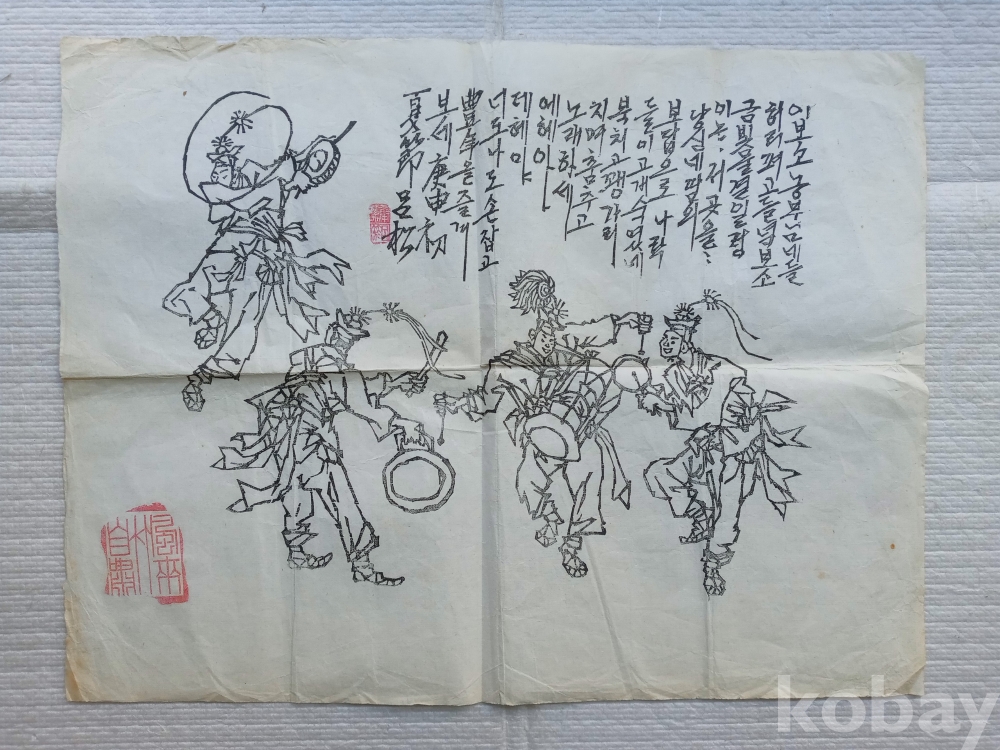 이보소 농부님네들
허리펴고 들녘보소
금빛물결 일렁
이는, 저 곳을..
땀의
보답으로 나락
들이 고개 숙였네
북치고 꽹가리
치며 춤추고
노래하세
에헤야
데헤야
너도나도 손잡고
豊年을 즐겨
보세 庚申初
夏節 呂松
kobay